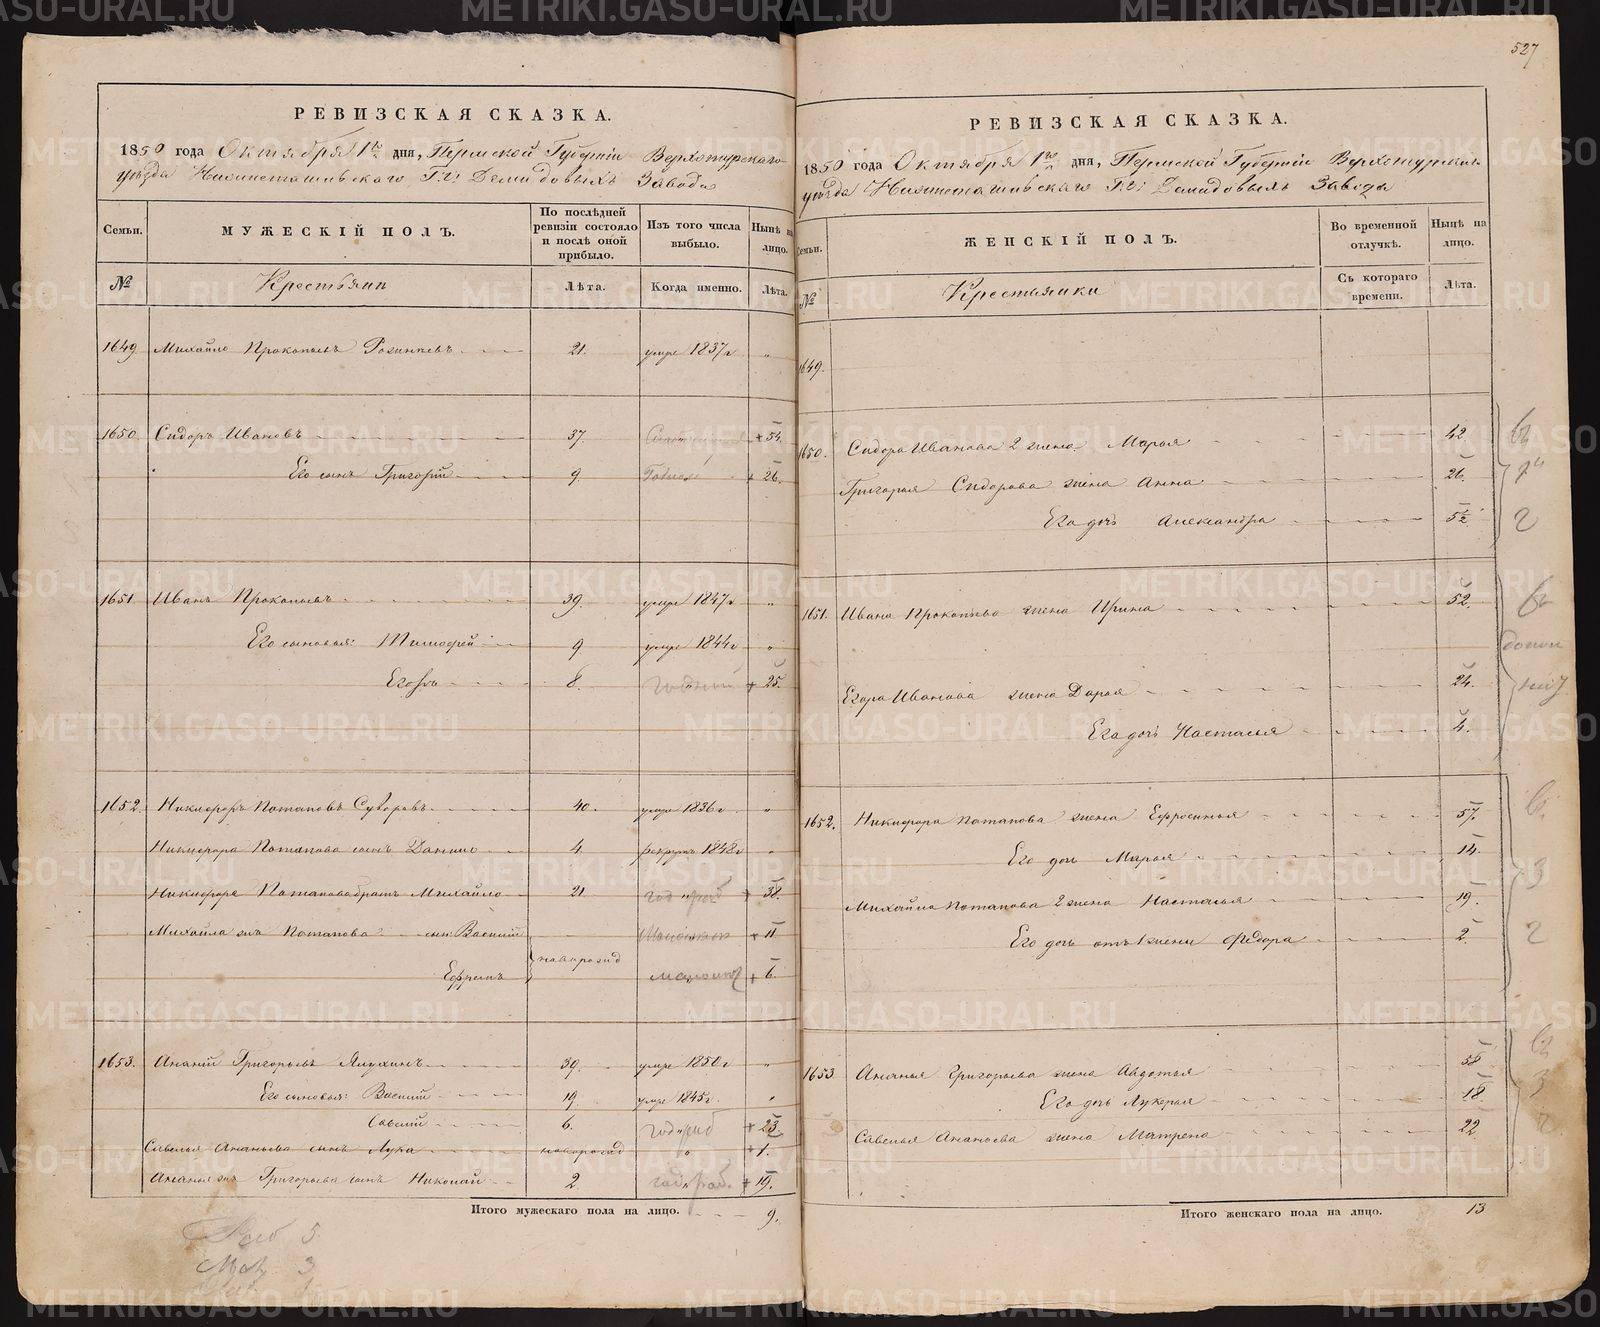 527
РЕВИЗСКАЯ СКАЗКА.
1850 года Октября 1го дня, Пермской Губерніи Верхотурскаго
уѣзда Нижнетагильскаго Г.г. Демидовыхъ Завода
Семьи.
МУЖЕСКІЙ ПОЛЪ.
По послѣдней ревизіи состояло и послѣ оной прибыло.
Изъ того числа выбыло.
Нынѣ на лицо.
№
Крестьяне
Лѣта.
Когда именно.
Лѣта.
1649. Михайло Прокопьевъ 21. умре 1837 г „
1650. Сидоръ Ивановъ 37. + 54.
Его сынъ Григорій 9. + 26.
1651. Иванъ Прокопьевъ 39. умре 1847 г „
Его сыновья: Тимофей 9 умре 1844 г „
Егоръ 8. годный + 25.
1652. Никифоръ Потаповъ Суворовъ 40. умре 1836 г „
Никифора Потапова сынъ Данило 4. рекрутъ 1848 г „
Никифора Потапова братъ Михайло 21. год „ раб + 38.
Михайла Потапова сын: Василій новорожд + 11
Ефремъ + 6.
1653. Ананій Григорьевъ Ялухинъ 39. умре 1850 г „
Его сыновья: Василій 19. умре 1845 г. „
Савелій 6. год „ раб + 23.
Савелья Ананьева сынъ Лука новорожд „ + 1.
Ананья Григорьева сынъ Николай 2. год „ раб. + 19.
Итого мужескаго пола на лицо. 9.
Раб 5
Мал 3
1
РЕВИЗСКАЯ СКАЗКА.
1850 года Октября 1го дня, Пермской Губерніи Верхотурскаго
уѣзда Нижнетагильскаго Г.г. Демидовыхъ Завода
Семьи.
ЖЕНСКІЙ ПОЛЪ.
Во временной отлучкѣ.
Нынѣ на лицо.
№
Крестьянки
Съ котораго времени.
Лѣта.
1649.
1650. Сидора Иванова 2 жена Марья 42
Григорья Сидорова жена Анна 26.
Его дочь Александра 5½
1651. Ивана Прокопьева жена Ирина 52.
Егора Иванова жена Дарья 24.
Его дочь Настасья 4.
1652. Никифора Потапова жена Ефросинья 57.
Его дочь Марья 14.
Михайла Потапова 2 жена Настасья 19.
Его дочь отъ 1 жены Федора 2.
1653 Ананья Григорьева жена Авдотья 58
Его дочь Лукерья 18
Савелья Ананьева жена Матрена 22
Итого женскаго пола на лицо. 13
METRIKI.GASO-URAL.RU